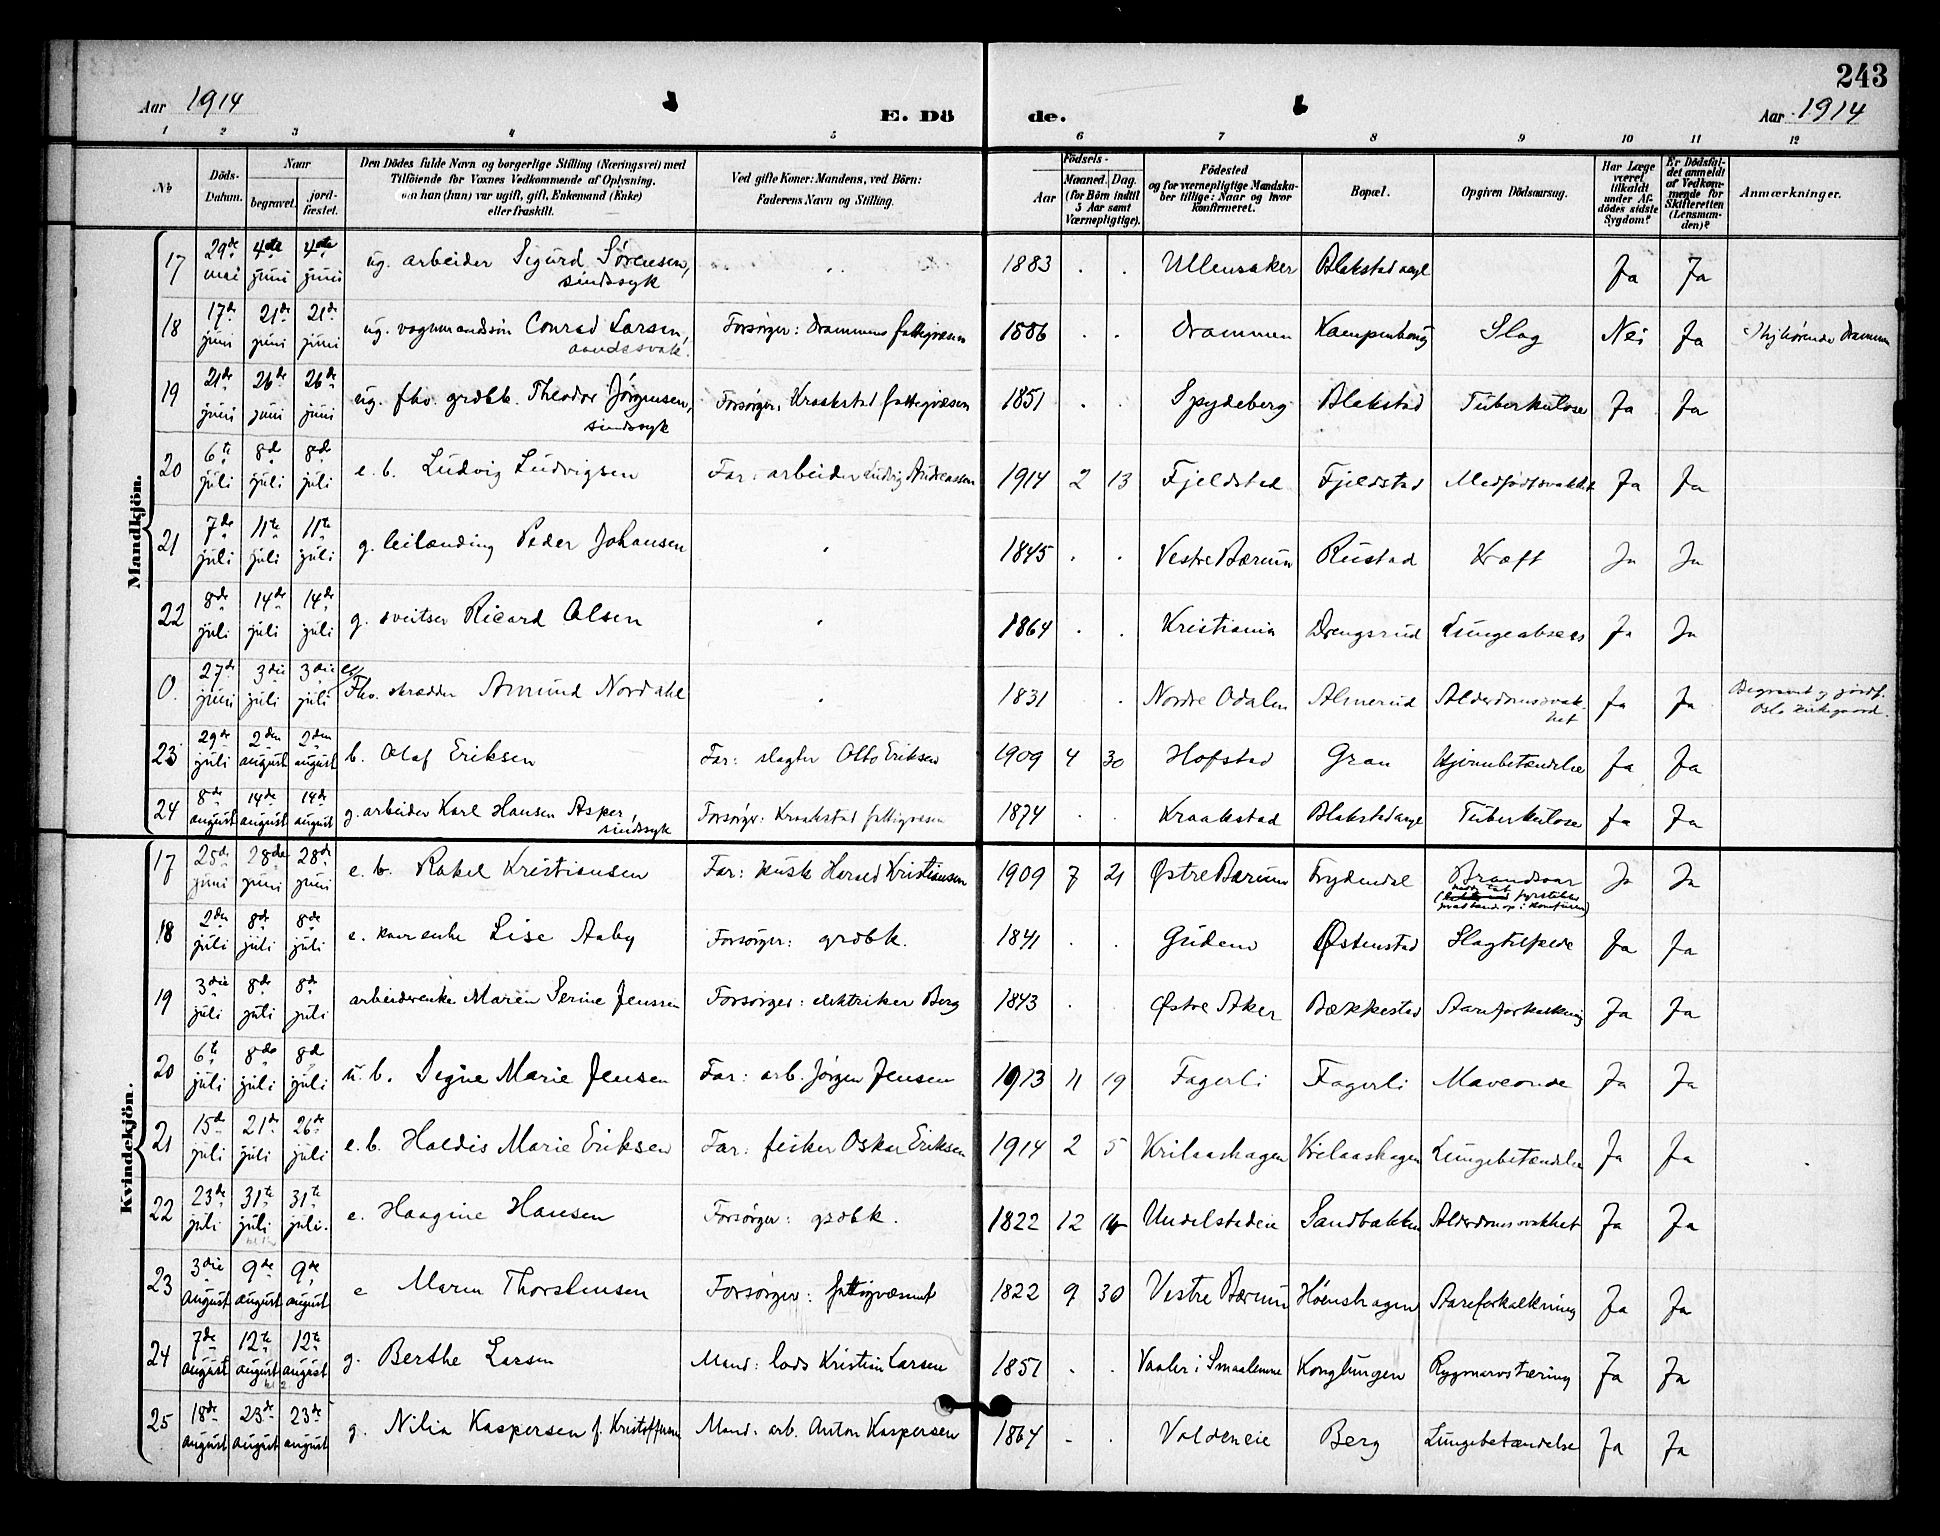 243
Aar 1914
E. Dö
de.
Aar 1914
1 2 3 4 5 6 7 8 9 10 11 12
No
Döds-Datum.
Naar
begravet.
jord-fæstet.
Den Dödes fulde Navn og borgerlige Stilling (Næringsvei) med
Tilföiende for Voxnes Vedkommende af Oplysning,
om han (hun) var ugift, gift, Enkemand (Enke)
eller fraskilt.
Ved gifte Koner: Mandens, ved Börn:
Faderens Navn og Stilling.
Födsels-
Aar
Maaned. Dag.
(for Börn indtil
5 Aar samt
Værnepligtige).
Födested
og for værnepligtige Mandska-
ber tillige: Naar og hvor
konfirmeret.
Bopæl.
Opgiven Dödsaarsag.
Har Læge
været
tilkaldt
under Af-
dödes sidste
Sygdom?
Er Dödsfal-
det anmeldt
af Vedkom-
mende for
Skifteretten
(Lensman-
den)?
Anmærkninger.
Mandkjön.
17 29de mai 4de juni 4de juni ug. arbeider Sigurd Sørensen, sindssyk 1883 . . Ullensaker Blakstad asyl Ja Ja
18 17de juni 21de juni 21de juni ug. vognmandssøn Conrad Larsen, aandssvak. Forsørger: Drammens fattigvæsen 1886 . . Drammen Kampenhaug Slag Nei Ja Drammen
19 21de juni 26de juni 26de juni ug. fhv. grdbk. Theodor Jørgensen, sindssyk Forsørger: Kraakstad fattigvæsen 1851 . . Spydeberg Blakstad Tuberkulose Ja Ja
20 6te juli 8de juli 8de juli e. b. Ludvig Ludvigsen Far: arbeider Ludvig Andreassen 1914 2 13 Fjeldstad Fjeldstad Medfødt svakhet Ja Ja
21 7de juli 11te juli 11te juli g. leilænding Peder Johansen 1845 . . Vestre Bærum Rustad Kræft Ja Ja
22 8de juli 14de juli 14de juli g. sveitser Ricard Olsen 1864 . . Kristiania Drengsrud Lungeabsess Ja Ja
0. 27de juni 3die juli 3die juli Fhv. skrædder Amund Nordahl 1831 . Nordre Odalen Almerud Alderdomssvakhet Ja Ja Begravet og jordf. Oslo kirkegaard.
23 29de juli 2den august 2den august b. Olaf Eriksen Far: slagter Otto Eriksen 1909 4 30 Hofstad Gran Hjernebetændelse Ja Ja
24 8de august 14de august 14de august g. arbeider Karl Hansen Asper, sindssyk Forsørger: Kraakstad fattigvæsen 1874 . . Kraakstad Blakstad asyl Tuberkulose Ja Ja
Kvindekjön.
17 25de juni 28de juni 28de juni e. b. Rakel Kristiansen Far: kusk Harald Kristiansen 1909 7 21 Østre Bærum Frydendal Brandsaar Ja Ja
18 2den juli 8de juli 8de juli e. Lise Aaby Forsørger: grdbk. 1841 . . Østenstad Slagtilfælde Ja Ja
19 3die juli 8de juli 8de juli arbeiderenke Maren Serine Jenssen Forsørger: elektriker Berg 1843 . . Østre Aker Bækkestad Aareforkalkning Ja Ja
20 6te juli 8de juli 8de juli u. b. Signe Marie Jensen Far: arb. Jørgen Jensen 1913 11 19 Fagerli Fagerli Maveonde Ja Ja
21 15de juli 21de juli 26de juli e. b. Haldis Marie Eriksen Far: fisker Oskar Eriksen 1914 2 5 Krilaashagen Krilaashagen Lungebetændelse Ja Ja
22 23de juli 31te juli 31te juli. e. Haagine Hansen Forsørger: grdbk. 1822 12 Undelstadeie Sandbakken Alderdomssvakhet Ja Ja
23 3die august 9de august 9de august e Maren Thorstensen Forsørger: fattigvæsenet 1822 9 30 Vestre Bærum Høenshagen Aareforkalkning Ja Ja
24 7de august 12te august 12te august g. Berthe Larsen Mand: lods Kristian Larsen 1851 . . Vaaler i Smaalenene Konglungen Rygmarvstæring Ja Ja
25 18de august 23de august 23de august g. Nilia Kaspersen f. Kristoffersen Mand: arb. Anton Kaspersen 1864 - . Valdeneie Berg Lungebetændelse Ja Ja